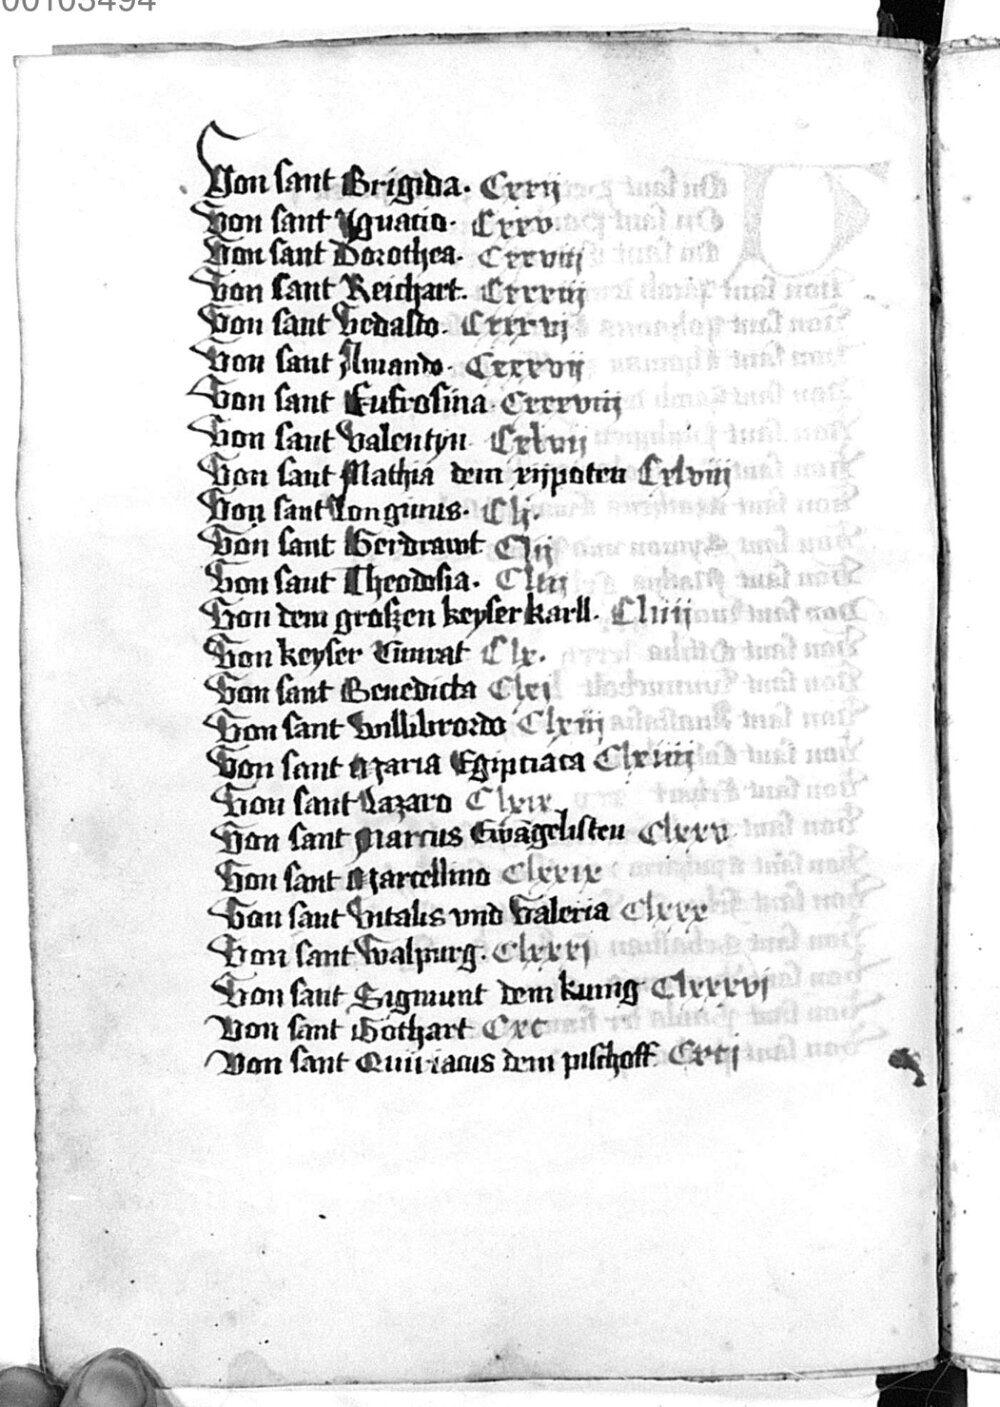 00103494
Von sant Brigida. Cxxij
Von sant Ignatio. Cxxv
Von sant Dorothea. Cxxviij
Von sant Reichart. Cxxxiij
Von sant Vedasto. Cxxxvj
Von sant Amando. Cxxxvij
Von sant Eufrosina. Cxxxviij
Von sant Valentyn Cxlvij
Von sant Mathia dem xijpoten Cxlviij
Von sant Longinus. Clj.
Von sant Gerdrawt Clij
Von sant Theodosia. Cliij
Von dem groszen keyser karll. Cliiij
Von keyser Clx.
Von sant Benedicta Clxj
Von sant Willibrordo Clxiij
Von sant Maria Egiptiaca Clxiiij
Von sant Lazaro Clxix
Von sant Marcus Ewãgelisten Clxxv
Von sant Marcellino Clxxix
Von sant Vitalis vnd Valeria Clxxx
Von sant Walpurg. Clxxxj
Von sant Sigmunt dem kunig Clxxxvj
Von sant Gothart Cxc
Von sant Quiriacus dem pischoff Cxcij